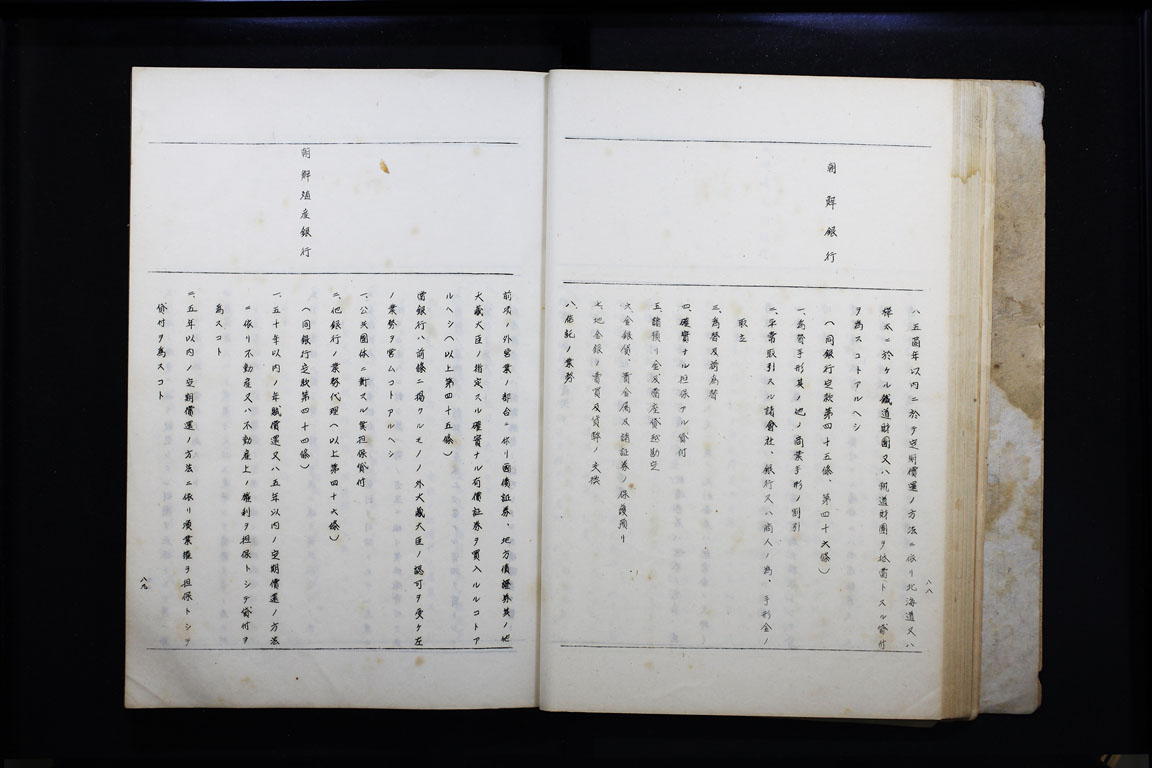 八五箇年以内ニ於テ定期償還ノ方法ニ依リ北海道又ハ
樺太ニ於ケル鐵道財團又ハ軌道財團ヲ抵當トスル貸付
ヲ為スコトアルヘシ
朝鮮銀行
(同銀行定款第四十五條、第四十六條)
一、為替手形其ノ他ノ商業手形ノ割引
二、平常取引スル諸會社、銀行又ハ商人ノ為、手形金ノ
取立
三、為替及荷為替
四、確實ナル担保アル貸付
五、諸預リ金及當座貸越勘定
六、金銀貨、貴金属及諸証券ノ保護預リ
七、地金銀ノ賣買及貨幣ノ交換
八、信託ノ業務
八八
前項ノ外営業ノ都合ニ依リ國債証券、地方債證券其ノ他
大蔵大臣ノ指定スル確實ナル有價証券ヲ買入ルルコトア
ルヘシ(以上第四十五條)
當銀行ハ前條ニ揭クルモノノ外大蔵大臣ノ認可ヲ受ケ左
ノ業務ヲ営ムコトアルヘシ
一、公共團体ニ對スル無担保貸付
二、他銀行ノ業務代理(以上第四十六條)
朝鮮殖産銀行
(同銀行定款第四十四條)
一、五十年以内ノ年賦償還又ハ五年以内ノ定期償還ノ方法
ニ依リ不動産又ハ不動産上ノ權利ヲ担保トシテ貸付ヲ
為スコト
二、五年以内ノ定期償還ノ方法ニ依リ漁業權ヲ担保トシテ
貸付ヲ為スコト
八九